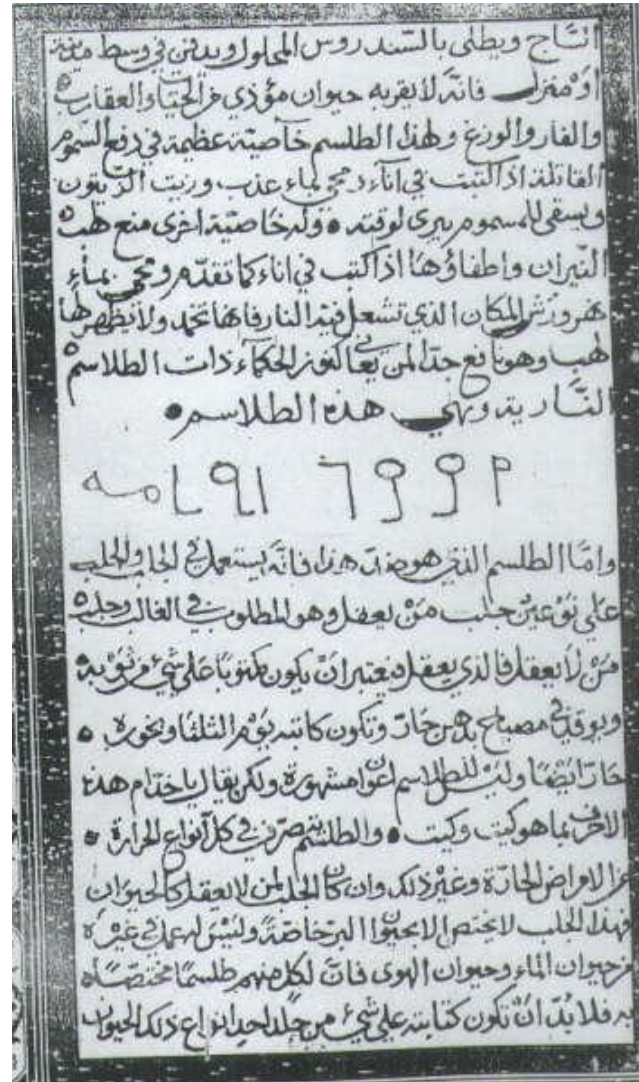 الساج ويطلى بالسندروس المحلول ويدفن في وسط مدينة
أو منزل فانه لا يقربه حيوان مؤذي من الحيات والعقارب
والفار والوزغ ولهذا الطلسم خاصية عظيمة في دفع السموم
القاتلة اذا كتبت في اناء ومحي بماء عذب وزيت الزيتون
ويسقى للمسموم يبرى لوقته • وله خاصية اخرى منع لهب
النيران واطفاؤها اذا كتب في اناء كما تقدم ومحي بماء
نهر ورش المكان الذي تشعل فيه النار فانها تخمد ولا يظهر لها
لهب وهو نافع جدا لمن يعاني كنوز الحكماء ذات الطلاسم
النارية وهي هذه الطلاسم •
واما الطلسم الذي هو ضد هذا فانه يستعمل في الجاب والجلب
على نوعين جلب من يعقل وهو المطلوب في الغالب وجلب
من لا يعقل فالذي يعقل فيعتبر ان يكون مكتوبا على شيء من ثوبه
ويوقد في مصباح بدهن حار وتكون كتابته يوم الثلثا وبخوره •
حارا ايضا وليس للطلاسم اعوان مشهورة ولكن يقال يا خدام هذه
الاحرف بما هو كيت وكيت • والطلسم يتصرف في كل أنواع الحرارة •
من الامراض الحارة وغير ذلك وان كان الجلب لمن لا يعقل كالحيوان
فهذا الجلب لا يختص الا بحيوان البر خاصة وليس له عمل في غيره
من حيوان الماء وحيوان الهوى فان لكل منهم طلسما مختصا
به فلا بد ان تكون كتابته على شيء من جلد احد انواع ذلك الحيوان